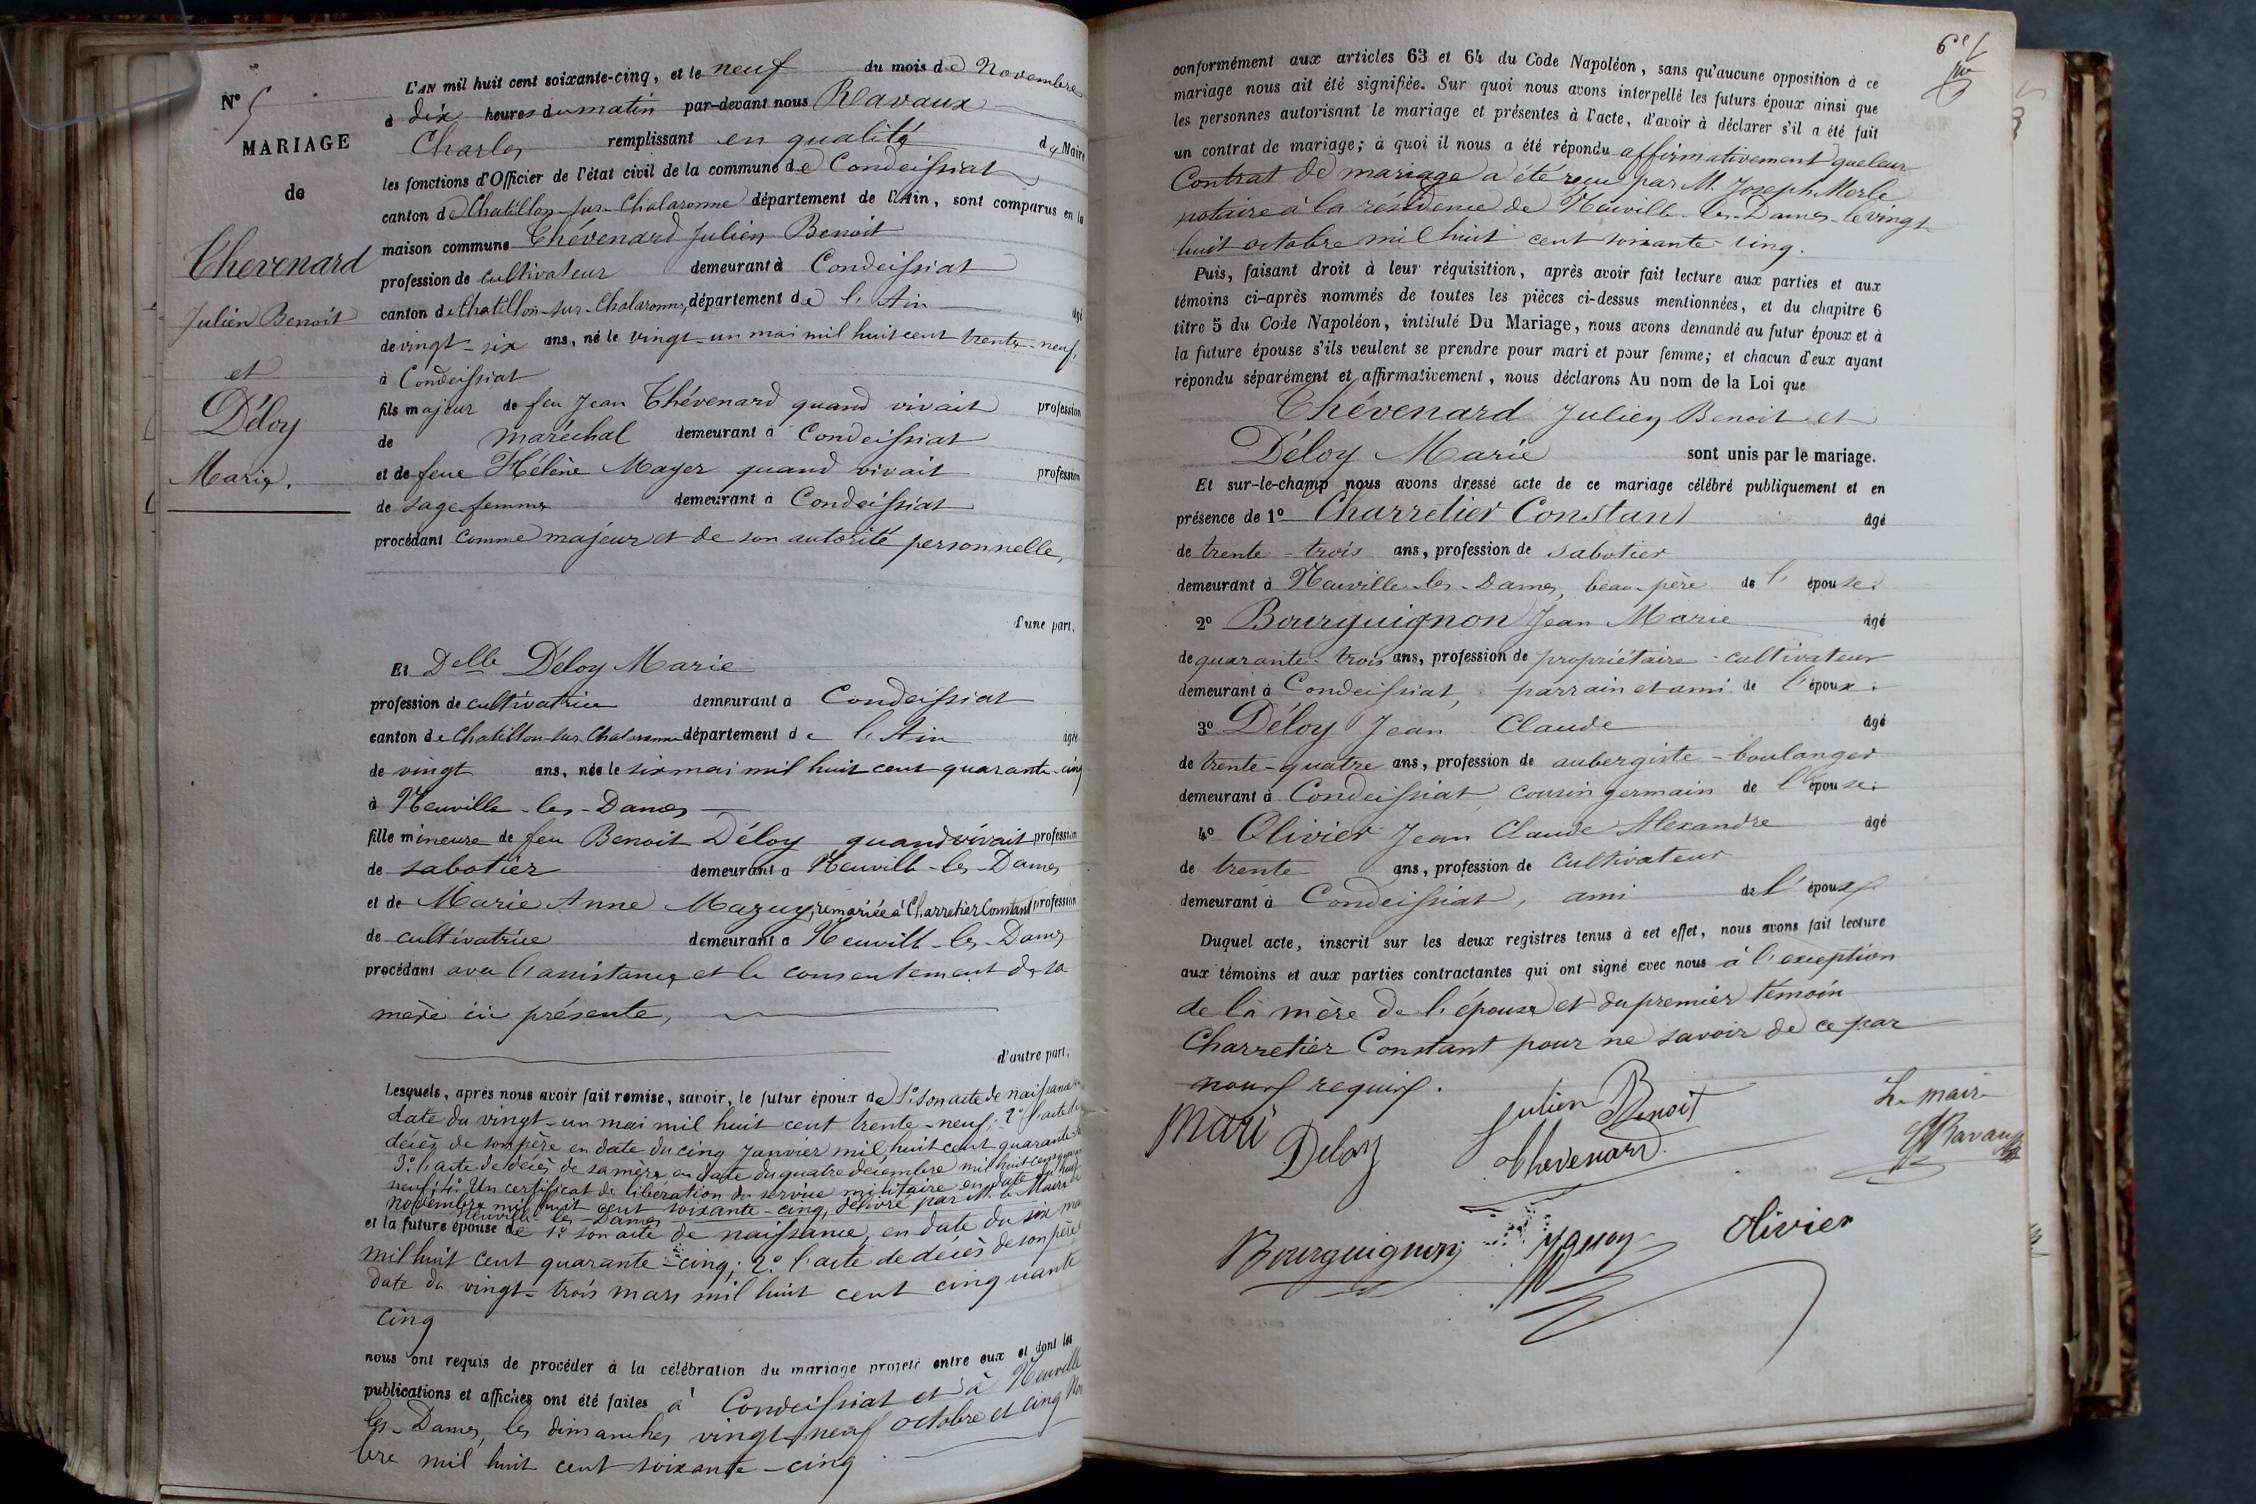 N° 5
MARIAGE
de
Thévenard
Julien Benoit
et
Déloy
Marie.
L'AN mil huit cent soixante-cinq, et le neuf du mois de Novembre
à dix heures du matin par-devant nous Ravaux
Charles remplissant en qualité de Maire
les fonctions d'Officier de l'état civil de la commune de Condeissiat
canton de Chatillon-sur-Chalaronne département de l'Ain, sont comparus en la
maison commune Thévenard Julien Benoit
profession de cultivateur demeurant à Condeissiat
canton de Chatillon-sur-Chalaronne, département de l'Ain âgé
de vingt-six ans, né le vingt-un mai mil huit cent trente-neuf,
à Condeissiat
fils majeur de feu Jean Thévenard quand vivait profession
de maréchal demeurant à Condeissiat
et de feue Hélène Mayer quand vivait profession
de sage femme demeurant à Condeissiat
procédant comme majeur et de son autorité personnelle,
d'une part,
Et Delle Déloy Marie
profession de cultivatrice demeurant à Condeissiat
canton de Chatillon-sur-Chalaronne département de l'Ain âgée
de vingt ans, née le six mai mil huit cent quarante-cinq
à Neuville-les-Dames
fille mineure de feu Benoit Déloy quand vivait profession
de sabotier demeurant à Neuville-les-Dames
et de Marie Anne Mazuy, remariée à Charretier Constant profession
de cultivatrice demeurant à Neuville-les-Dames
procédant avec l'assistance et le consentement de sa
mère ici présente,
d'autre part;
Lesquels, après nous avoir fait remise, savoir, le futur époux de 1° son acte de naissance
date du vingt-un mai mil huit cent trente-neuf; 2° l'acte de
décès de son père en date du cinq Janvier mil huit cent quarante
3° l'acte de décès de sa mère en date du quatre décembre mil huit cent
neuf; 4° Un certificat de libération du service militaire en date du huit
novembre mil huit cent soixante-cinq, délivré par M. le Maire de
Neuville-les-Dames
et la future épouse de 1° son acte de naissance, en date du six mai
mil huit cent quarante-cinq; 2° l'acte de décès de son père
date du vingt-trois mars mil huit cent cinquante
cinq
nous ont requis de procéder à la célébration du mariage projeté entre eux et dont les
publications et affiches ont été faites à Condeissiat et à Neuville
les-Dames, les dimanches vingt-neuf octobre et cinq Nov
bre mil huit cent soixante-cinq
conformément aux articles 63 et 64 du Code Napoléon, sans qu'aucune opposition à ce
mariage nous ait été signifiée. Sur quoi nous avons interpellé les futurs époux ainsi que
les personnes autorisant le mariage et présentes à l'acte, d'avoir à déclarer s'il a été fait
un contrat de mariage; à quoi il nous a été répondu affirmativement que leur
Contrat de mariage a été reçu par M. Joseph Merle
notaire à la résidence de Neuville-les-Dames le vingt
huit octobre mil huit cent soixante-cinq.
Puis, faisant droit à leur réquisition, après avoir fait lecture aux parties et aux
témoins ci-après nommés de toutes les pièces ci-dessus mentionnées, et du chapitre 6
titre 5 du Code Napoléon, intitulé Du Mariage, nous avons demandé au futur époux et à
la future épouse s'ils veulent se prendre pour mari et pour femme; et chacun d'eux ayant
répondu séparément et affirmativement, nous déclarons Au nom de la Loi que
Thévenard Julien Benoit et
Déloy Marie sont unis par le mariage.
Et sur-le-champ nous avons dressé acte de ce mariage célébré publiquement et en
présence de 1° Charretier Constant âgé
de trente-trois ans, profession de sabotier
demeurant à Neuville-les-Dames, beau-père de l'épouse.
2° Bourguignon Jean Marie âgé
de quarante-trois ans, profession de propriétaire-cultivateur
demeurant à Condeissiat, parrain et ami de l'époux.
3° Déloy Jean Claude âgé
de trente-quatre ans, profession de aubergiste-boulanger
demeurant à Condeissiat cousin germain de l'épouse.
4° Olivier Jean Claude Alexandre âgé
de trente ans, profession de cultivateur
demeurant à Condeissiat, ami de l'époux
Duquel acte, inscrit sur les deux registres tenus à cet effet, nous avons fait lecture
aux témoins et aux parties contractantes qui ont signé avec nous à l'exception
de la mère de l'épouse et du premier témoin
Charretier Constant pour ne savoir de ce par
nous requis.
Mari Deloy
Julien Benoit
Thevenard
Le maire
Ravaux
Bourguignon
Olivier